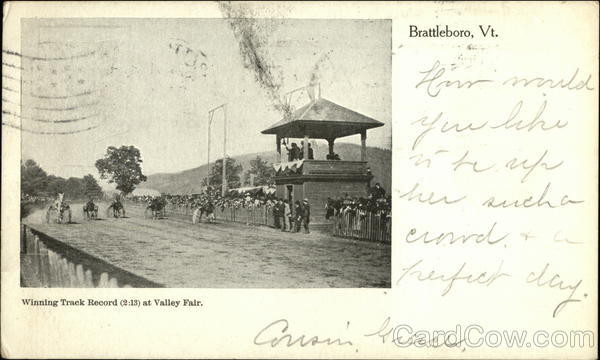 Brattleboro, Vt.
How would
you like
to be up
her such a
crowd. & a
perfect day.
Winning Track Record (2:13) at Valley Fair.
Cousin Grace.
CardCow.com